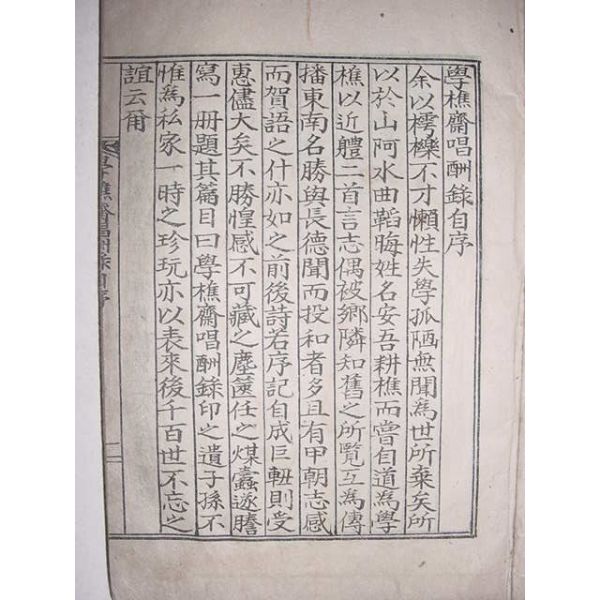 學樵齋唱酬錄自序
余以樗櫟不才懶性失學孤陋無聞為世所棄矣所
以於山阿水曲韜晦姓名安吾耕樵而嘗自道為學
樵以近軆二首言志偶被鄉隣知舊之所覽互為傳
播東南名勝與長德聞而投和者多且有甲朝志感
而賀語之什亦如之前後詩若序記自成巨軸則受
惠儘大矣不勝惶感不可藏之塵篋任之煤蠹遂謄
寫一冊題其篇目曰學樵齋唱酬錄印之遺子孫不
惟為私家一時之珍玩亦以表來後千百世不忘之
誼云甭
學樵齋唱酬錄自序
一